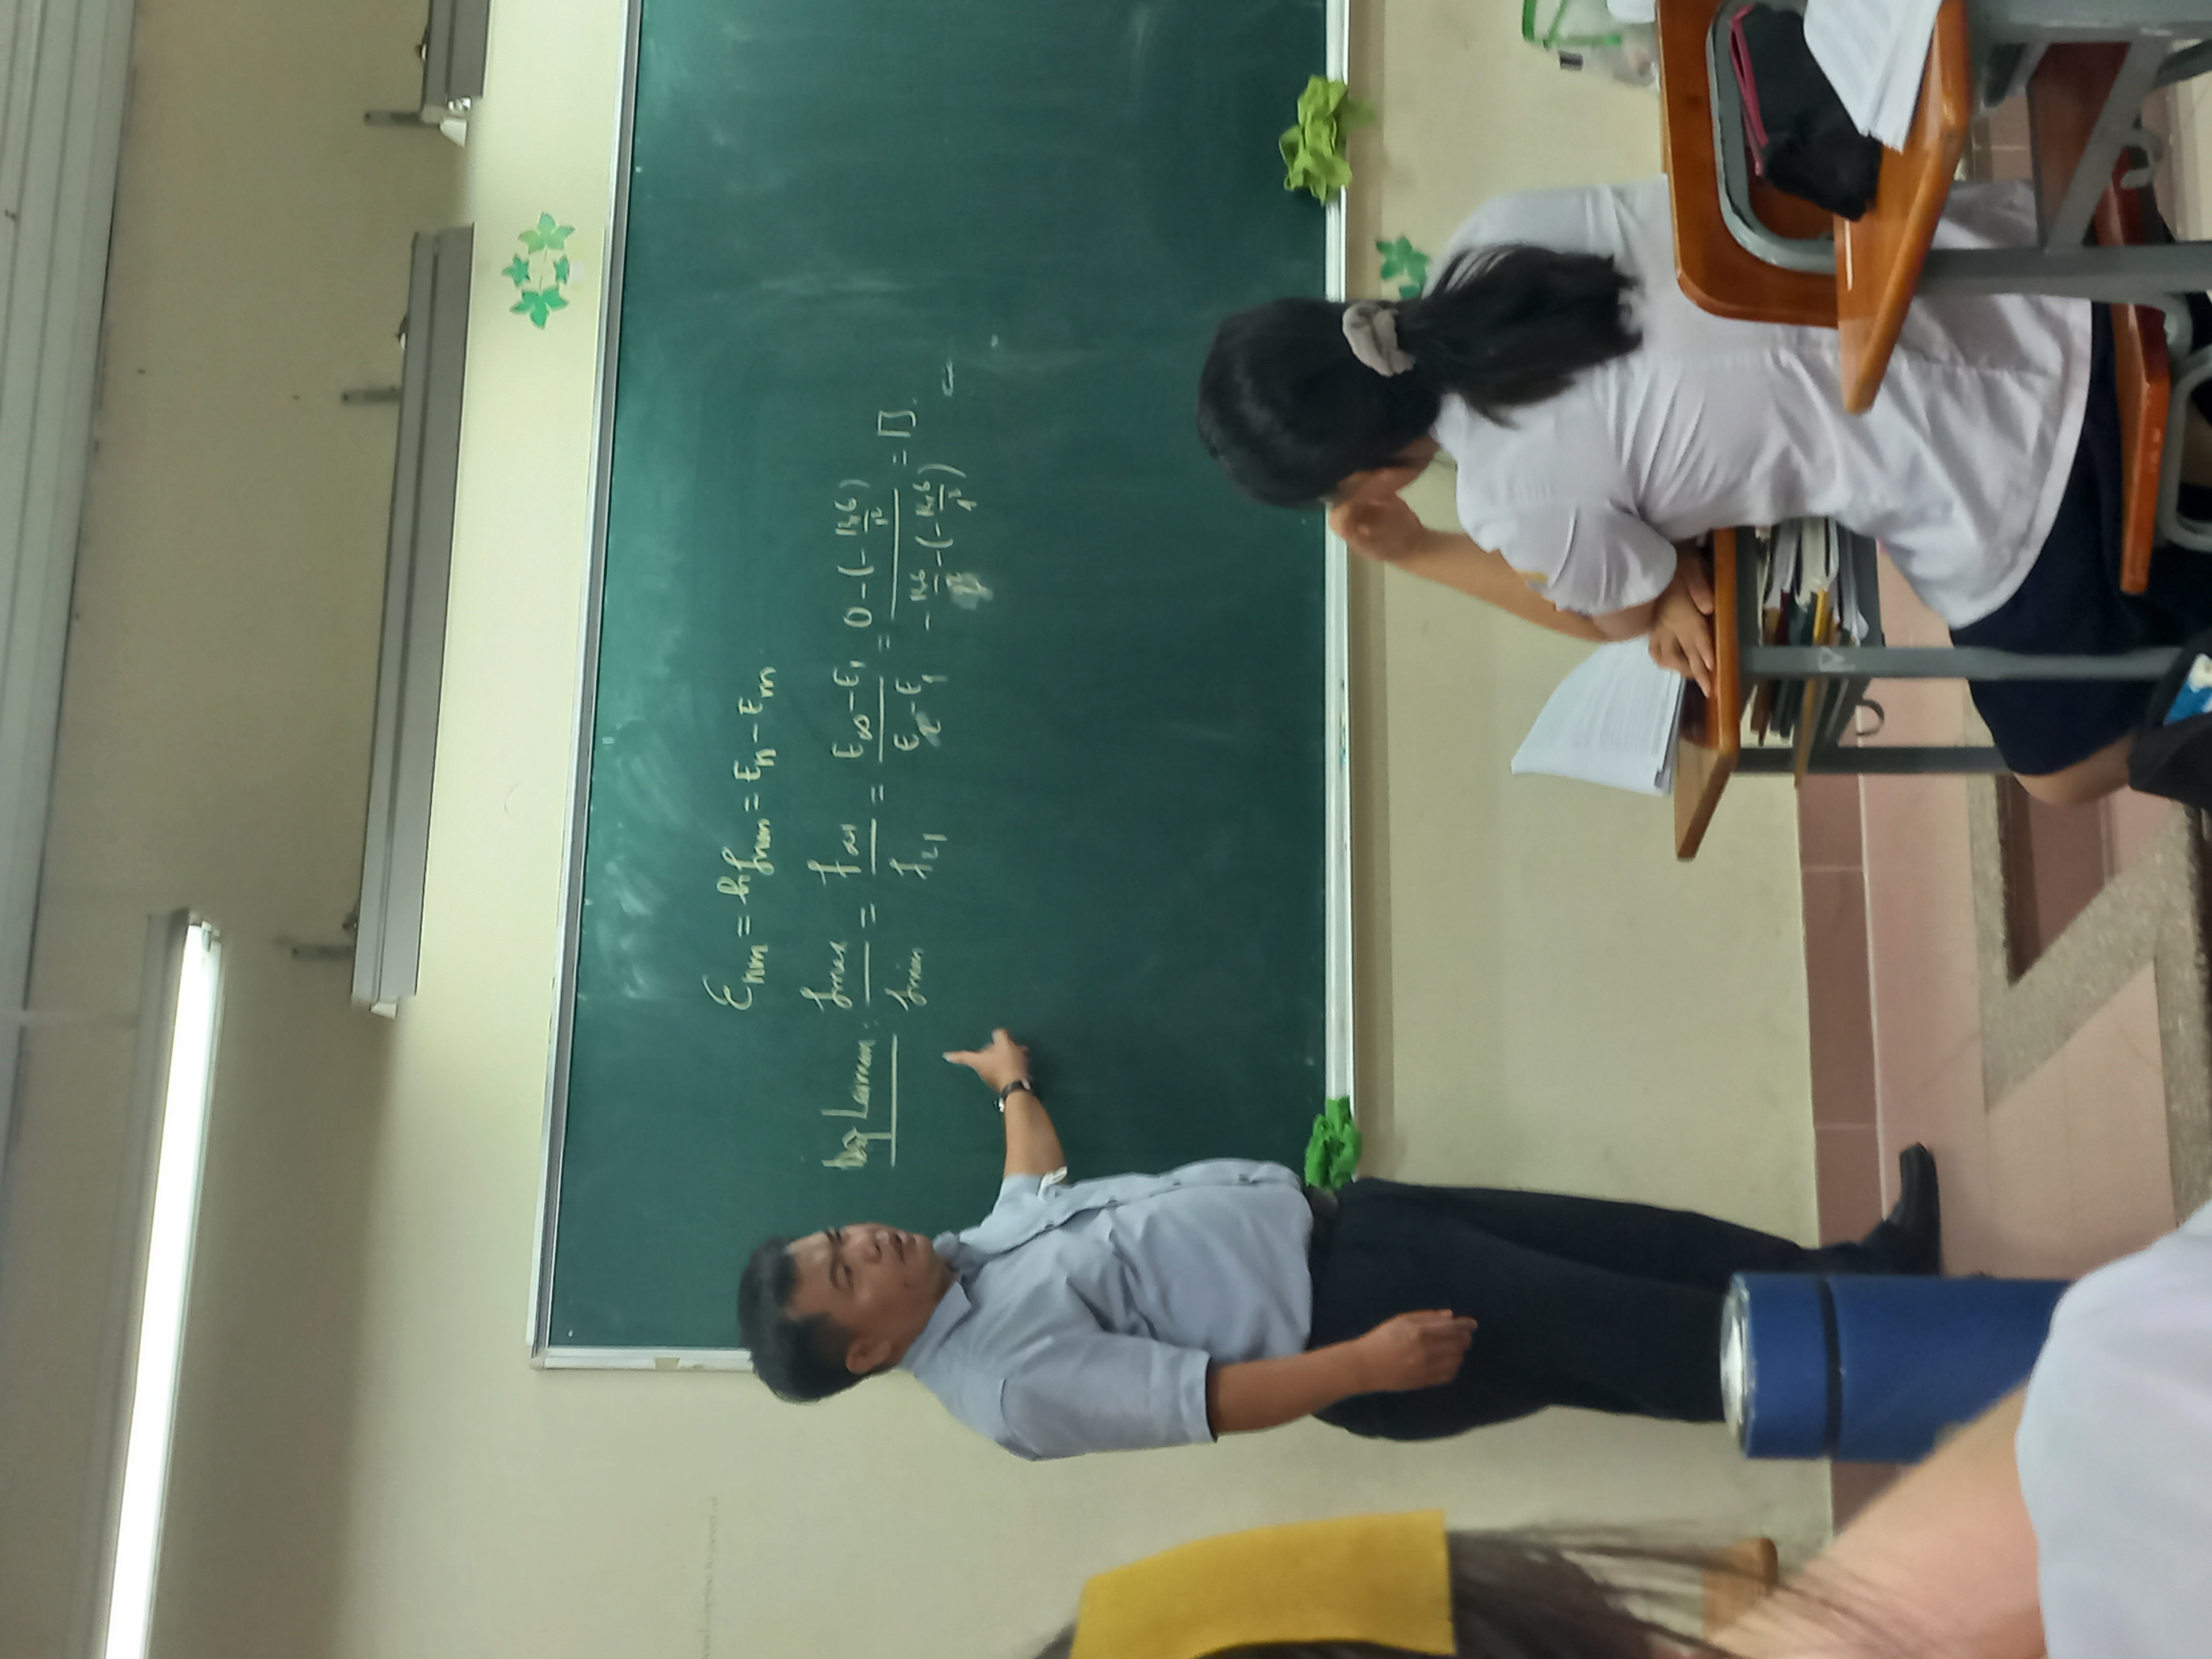 Ɛnm = hfnm = En − Em
Laiman: fmax/fmin = f∞1/f21 = (E∞ − E1)/(E2 − E1) = (0 − (−13,6/1²))/(−13,6/2² − (−13,6/1²)) =